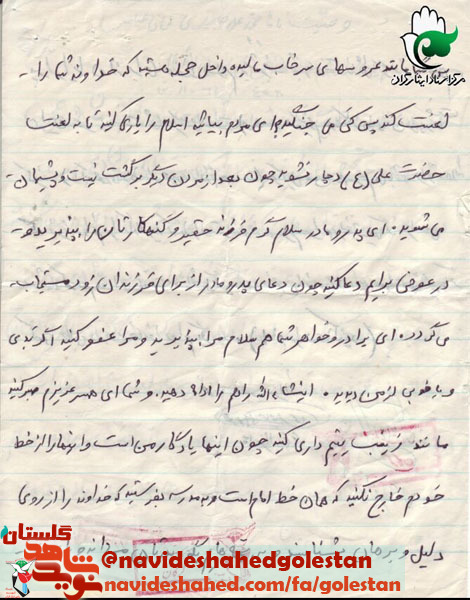 مرکز اسناد ایثارگران
مانند عروسهای سرخاب مالیده داخل حجله هستید که خداوند شما را
لعنت کند پس کی می جنگید ای مردم بیائید اسلام را یاری کنید تا به لعنت
حضرت علی (ع) دچار نشوید چون بعد از مردن دیگر برگشت نیست و پشیمان
می شوید. ای پدر و مادر سلام گرم فرزند حقیر و گنهکارتان را بپذیرید و
در عوض برایم دعا کنید چون دعای پدر و مادر از برای فرزندان زود مستجاب
می گردد. ای برادر و خواهر شما هم سلام مرا بپذیرید و مرا عفو کنید اگر بدی
و یا خوبی از من دیدید. اینشاءالله راهم را ادامه دهید. و شما ای همسر عزیزم صبر کنید
مانند زینب یتیم داری کنید چون اینها یادگار من است و اینها را از خط
خودم خارج نکنید که همان خط امام است و به مدرسه بفرستید که خداوند را از روی
دلیل و برهان
نوید شاهد گلستان
@navideshahedgolestan
navideshahed.com/fa/golestan